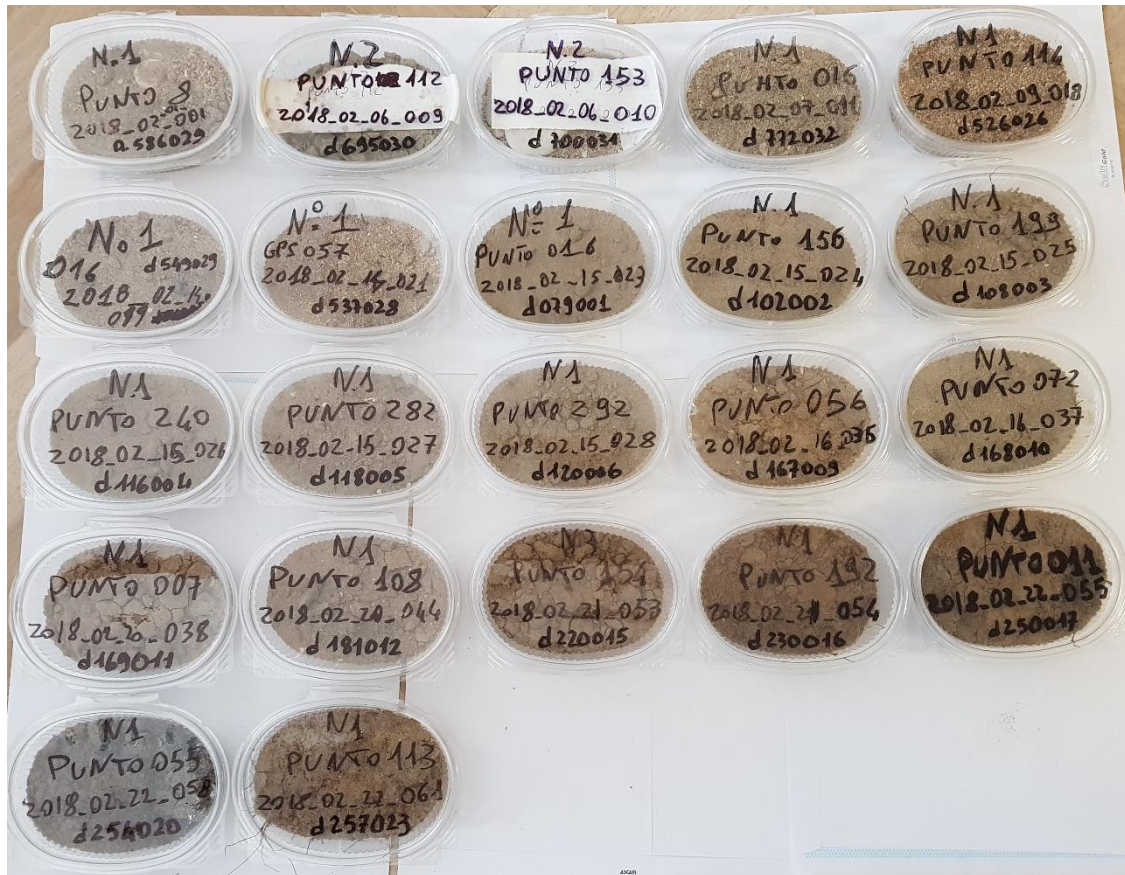 N.1
PUNTO 8
2018_02_001
a586029
N.2
PUNTO 112
2018_02_06_009
d695030
N.2
PUNTO 153
2018_02_06_010
d700031
N1
PUNTO 016
2018_02_07_011
d772032
N1
PUNTO 116
2018_02_09_018
d526026
No 1
016 d549029
2018_02_14_
019
Nº1
GPS 057
2018_02_14_021
d537028
Nº1
PUNTO 016
2018_02_15_023
d079001
N.1
PUNTO 156
2018_02_15_024
d102002
N.1
PUNTO 199
2018_02_15_025
d108003
N.1
PUNTO 240
2018_02_15_026
d116004
N.1
PUNTO 282
2018_02_15_027
d118005
N1
PUNTO 292
2018_02_15_028
d120006
N.1
PUNTO 056
2018_02_16_035
d167009
N1
PUNTO 072
2018_02_16_037
d168010
N1
PUNTO 007
2018_02_20_038
d169011
N1
PUNTO 108
2018_02_20_044
d181012
PUNTO
2018_02_21_053
d220015
N1
PUNTO 192
2018_02_21_054
d230016
N1
PUNTO 011
2018_02_22_055
d250017
N1
PUNTO 055
2018_02_22_058
d254020
N1
PUNTO 113
2018_02_22_061
d257023